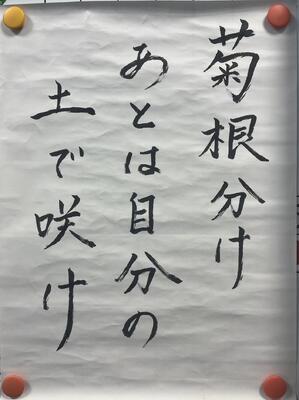 菊根分け
あとは自分の
土で咲け